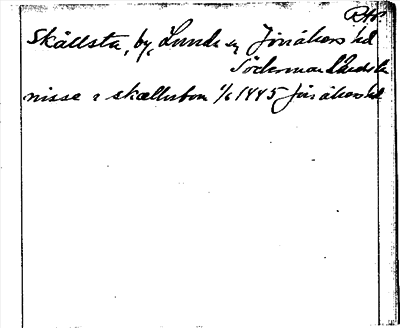 Skällsta, by, Lunda sn Jönåkers hd
Södermanlands
nisse i skællistom 1/6 1445 Jönåkers hd